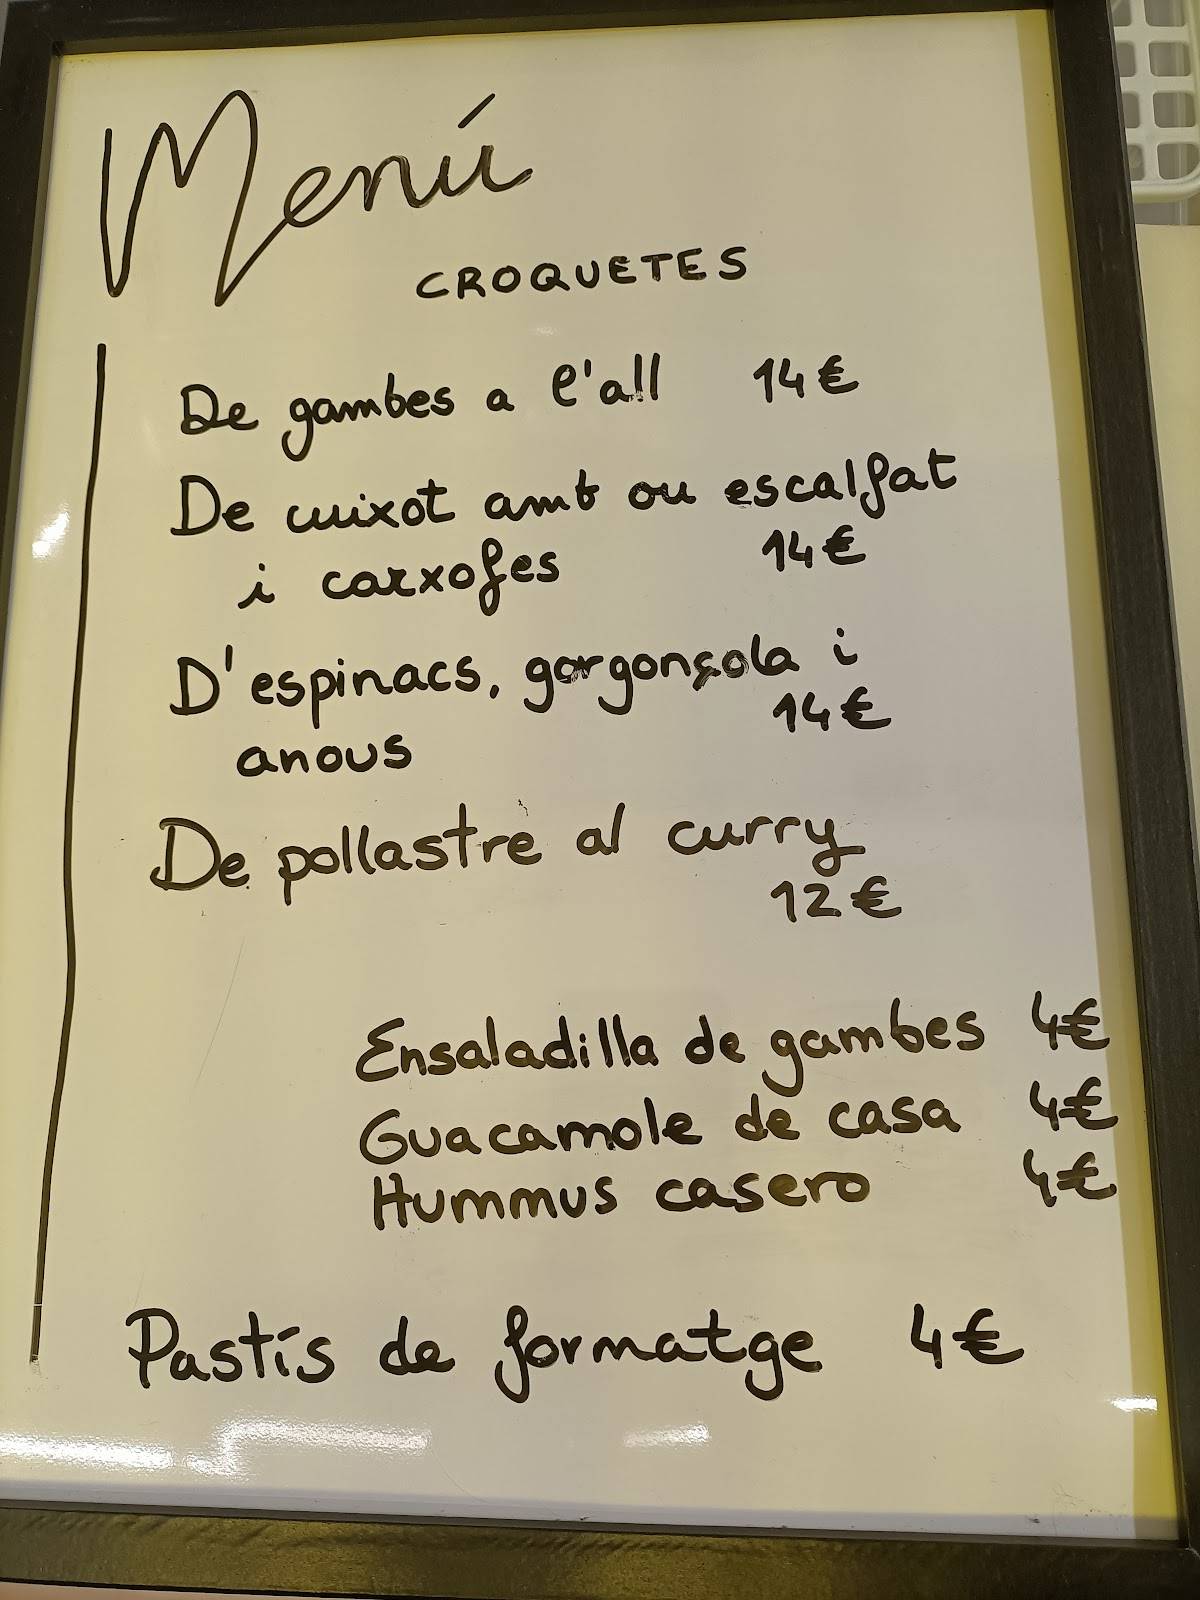 Menú
CROQUETES
De gambes a l'all 14€
De cuixot amb ou escalfat
i carxofes 14€
D'espinacs, gorgonçola i
anous 14€
De pollastre al curry
12€
Ensaladilla de gambes 4€
Guacamole de casa 4€
Hummus casero 4€
Pastís de formatge 4€